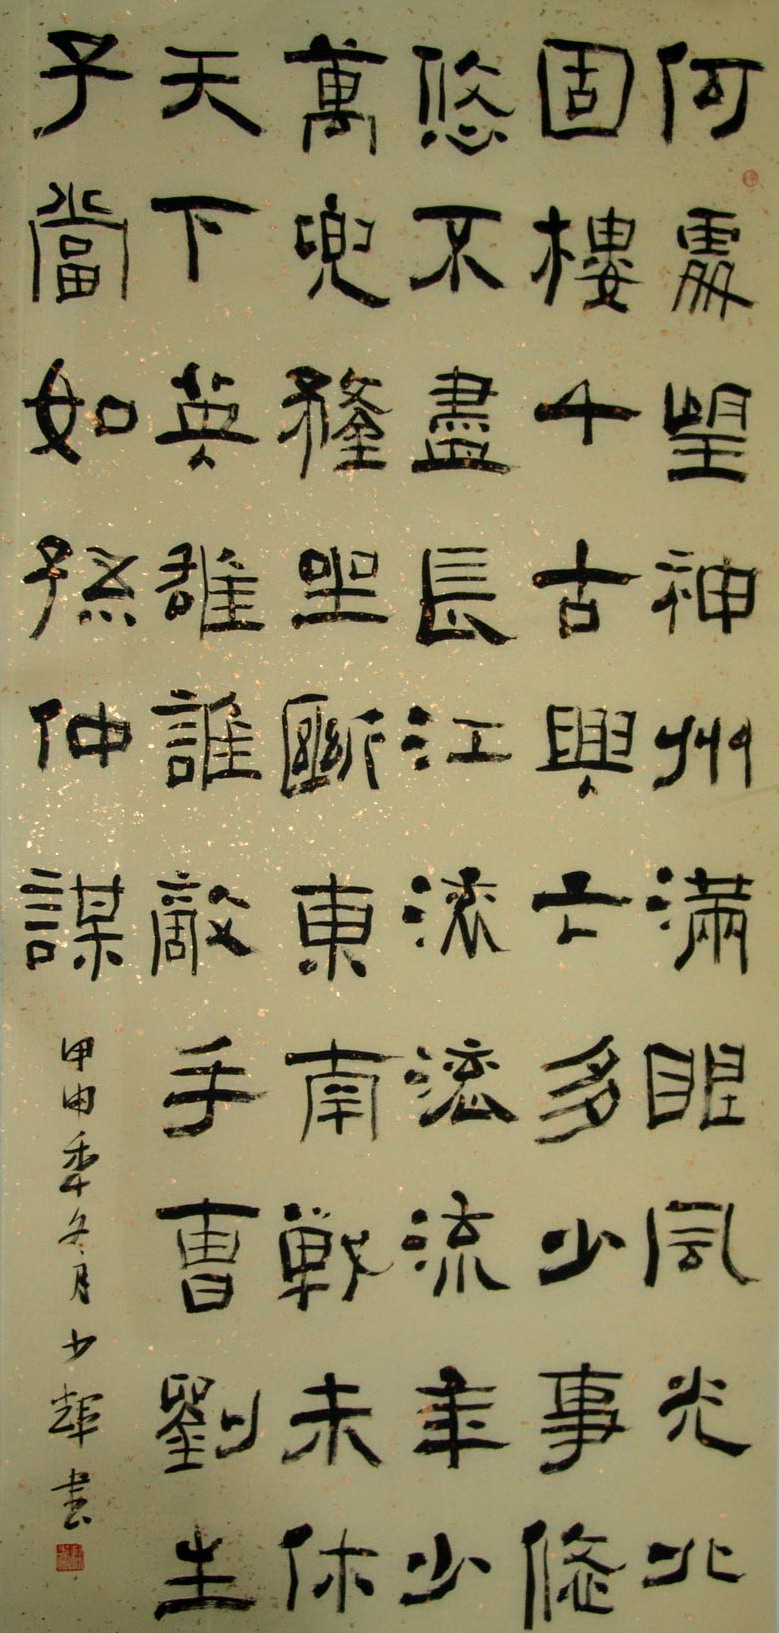 何處望神州滿眼風光北
固樓千古興亡多少事悠
悠不盡長江滾滾流年少
萬兜鍪坐斷東南戰未休
天下英雄誰敵手曹劉生
子當如孫仲謀
甲申年冬月少輝書